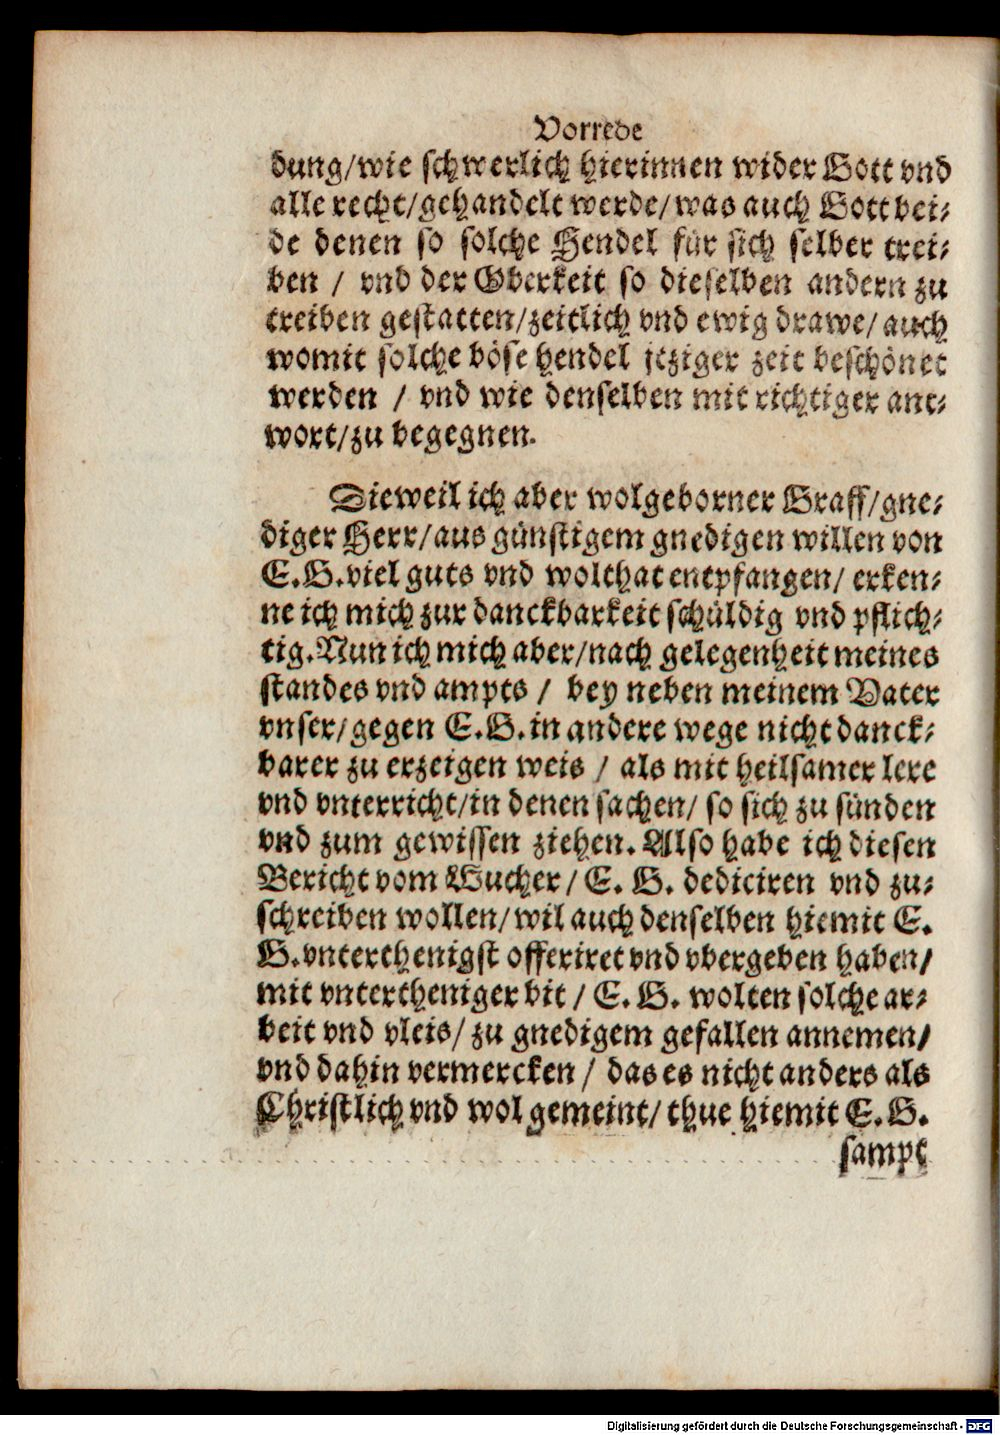 Vorrede
dung/wie schwerlich hierinnen wider Gott vnd
alle recht/gehandelt werde/was auch Gott bei⸗
de denen so solche Hendel für sich selber trei⸗
ben / vnd der Oberkeit so dieselben andern zu
treiben gestatten/zeitlich vnd ewig drawe/auch
womit solche böse hendel jtziger zeit beschönet
werden / vnd wie denselben mit richtiger ant⸗
wort/zu begegnen.
Dieweil ich aber wolgeborner Graff/gne⸗
diger Herr/aus günstigem gnedigen willen von
E.G.viel guts vnd wolthat entpfangen/ erken⸗
ne ich mich zur danckbarkeit schüldig vnd pflich⸗
tig.Nun ich mich aber/nach gelegenheit meines
standes vnd ampts / bey neben meinem Vater
vnser/gegen E.G.in andere wege nicht danck⸗
barer zu erzeigen weis / als mit heilsamer lere
vnd vnterricht/in denen sachen/ so sich zu sünden
vnd zum gewissen ziehen. Also habe ich diesen
Bericht vom Wucher/ E. G. dediciren vnd zu⸗
schreiben wollen/wil auch denselben hiemit E.
G.vnterthenigst offeriret vnd vbergeben haben/
mit vntertheniger bit / E. G. wolten solche ar⸗
beit vnd vleis/ zu gnedigem gefallen annemen/
vnd dahin vermercken / das es nicht anders als
Christlich vnd wol gemeint/ thue hiemit E.G.
sampt
Digitalisierung gefördert durch die Deutsche Forschungsgemeinschaft - DFG